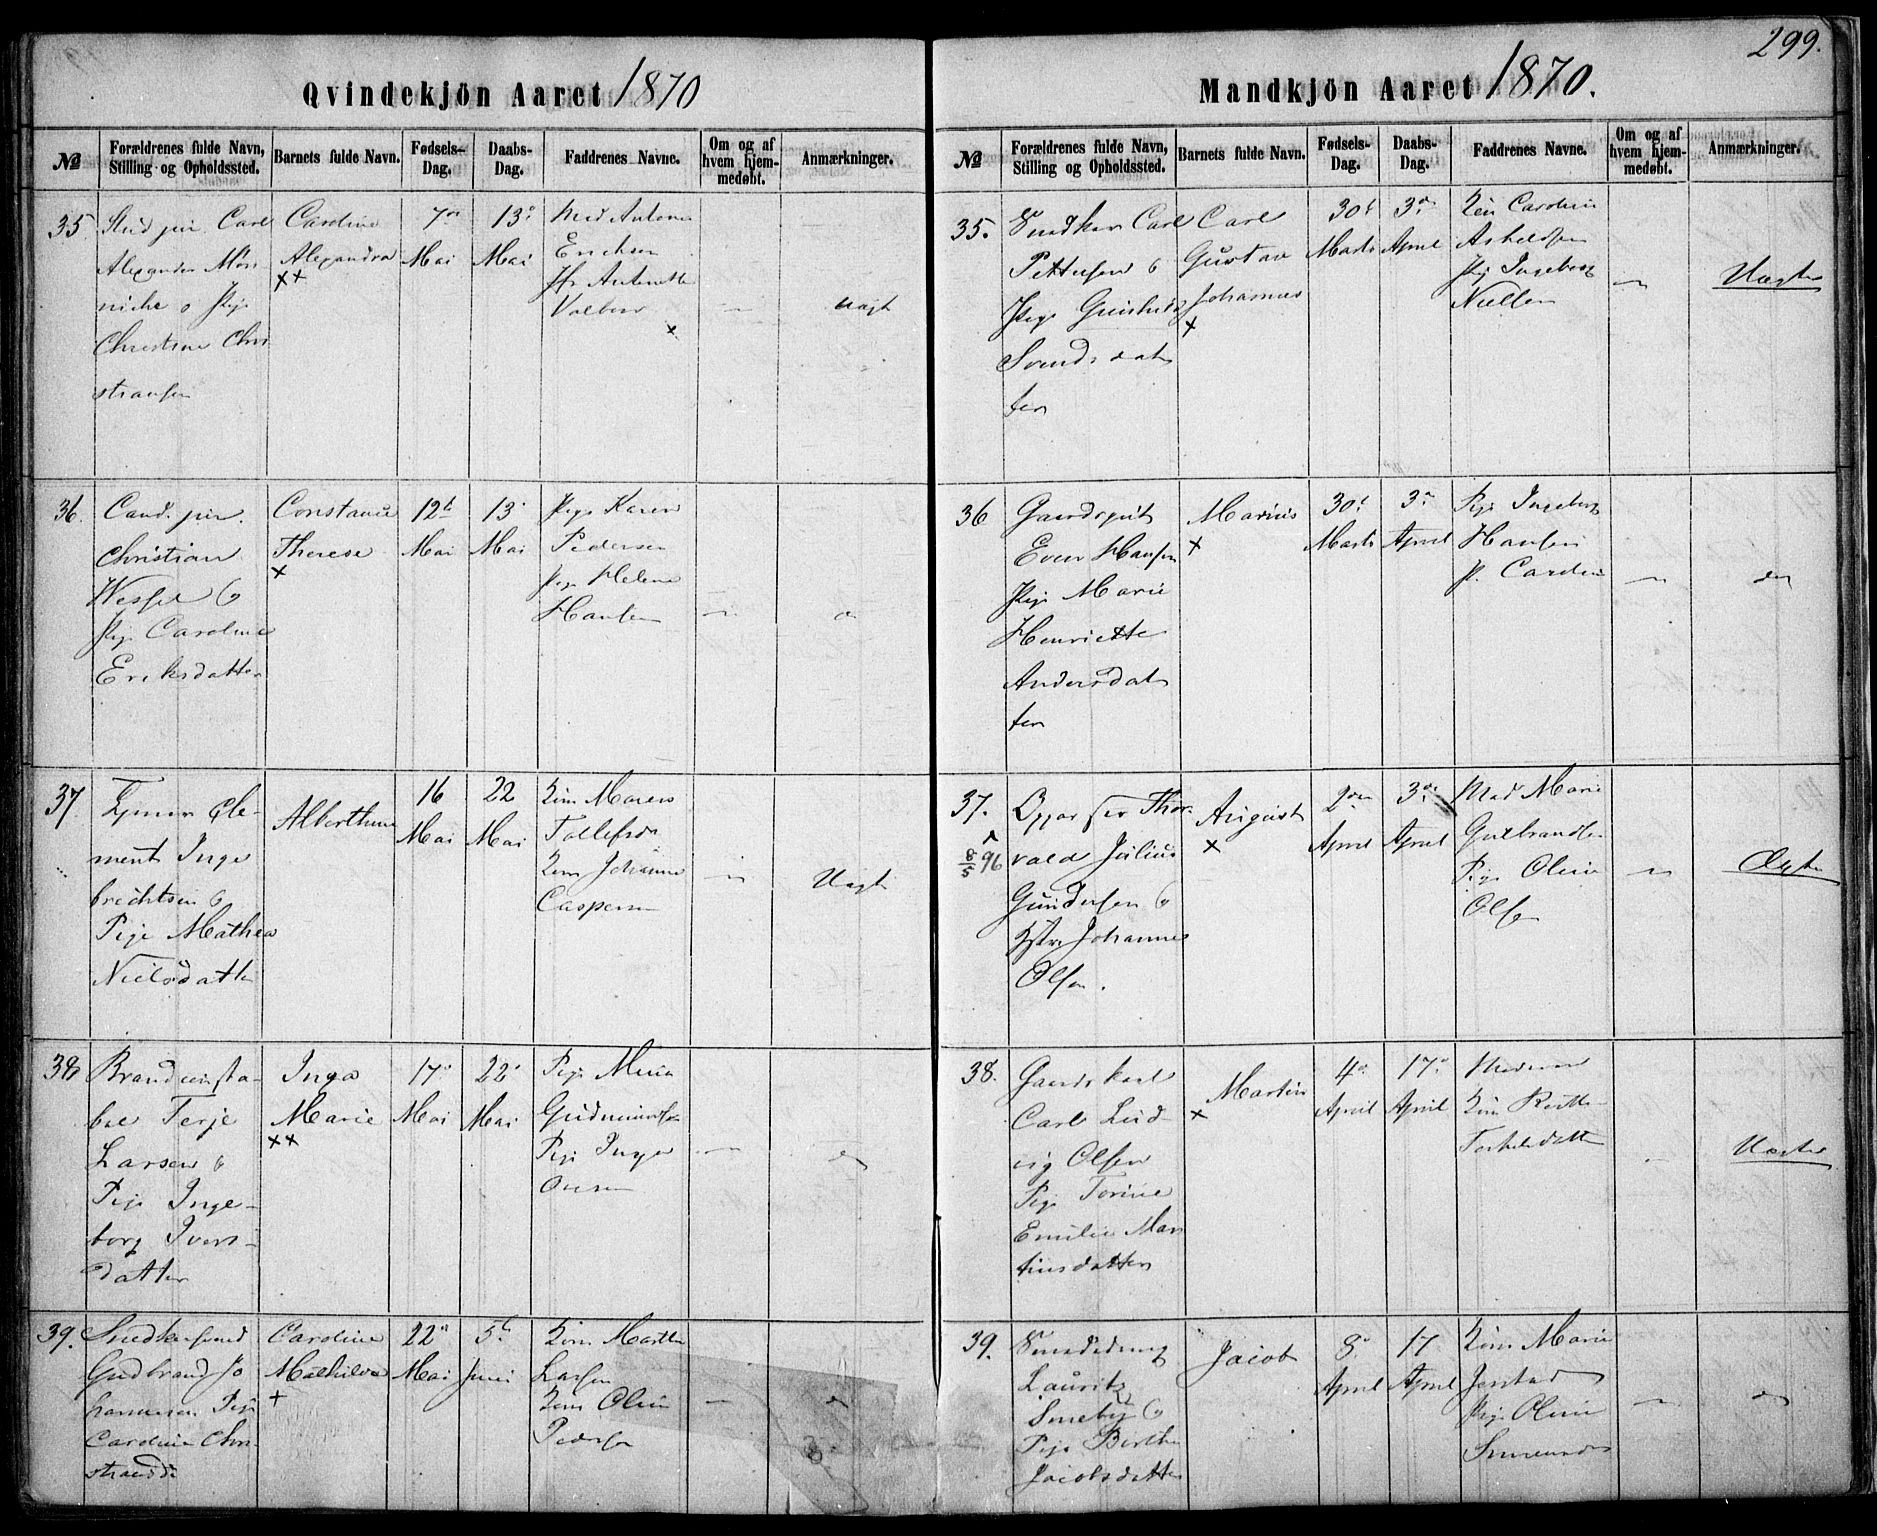 299.
Qvindekjön Aaret 1870
№
Forældrenes fulde Navn, Stilling og Opholdssted.
Barnets fulde Navn.
Fødsels-Dag.
Daabs-Dag.
Faddrenes Navne.
Om og af hvem hjemmedøbt.
Anmærkninger.
35
Stud jur. Carl
Alexander
niche o Pige
Christine Chri
stiansen
Caroline
Alexandra
××
7de
Mai
13de
Mai
Mad Antone
Erichsen
×
Uægt
36.
Cand. jur.
Christian
Wessel o
Pige Caroline
Eriksdatter
Constance
Therese
×
12te
Mai
13
Mai
Pige Karen
Pedersen
Pige Helene
Hansen
37.
Cle-
ment Inge
brechtsen o
Pige Mathea
Nielsdatter
Alberthine
16
Mai
22
Mai
Kone Maren
Tollefsen
Kone Johanne
Caspersen
Uægt
38
Brandconsta-
bel Terje
Larsen o
Pige Inge-
borg Ivers-
datter
Inga
Marie
××
17de
Mai
22
Mai
Pige
Gudmundsen
Pige Inger
39.
Snedkersvend
Gudbrand Jo
hannesen Pige
Caroline Chri
Caroline
Mathilde
+
22
Mai
5te
Juni
Kone Marthe
Larsen
Kone Oline
Pedersen
Mandkjön Aaret 1870.
№
Forældrenes fulde Navn, Stilling og Opholdssted.
Barnets fulde Navn.
Fødsels-Dag.
Daabs-Dag.
Faddrenes Navne.
Om og af hvem hjemmedøbt.
Anmærkninger.
35.
Snedker Carl
Pettersen o
Pige Gunhild
Svendsdat
ter
Carl
Gustav
Johannes
×
30te
Marts
3de
April
Kone Caroline
Pige Ingeborg
Nielsen
Uægte
36
Gaardsgut
Even Hansen
Pige Marie
Henriette
Andersdat
ter
Marius
×
30te
Marts
3de
April
Pige Ingeborg
Hansen
P. Caroline
37.
8/5 96
Oppasser Thor
vald Julius
Gundersen o
Hstr. Johanne
Olsen.
August
×
2den
April
3die
April
Mad Marie
Gulbrandsen
Pige Oline
Olsen
Ægte
38.
Gaardskarl
Carl Lud-
vig Olsen
Pige Torine
Emilie Mar
tinsdatter
Martin
×
4de
April
17de
April
Moderen
Kone Berthe
Torkelsdatter
Uægte
39.
Lauritz
Smeby o
Pige Berthe
Jacobsdatter
Jacob
8
April
17
April
Kone Marie
Jerstad
Pige Oline